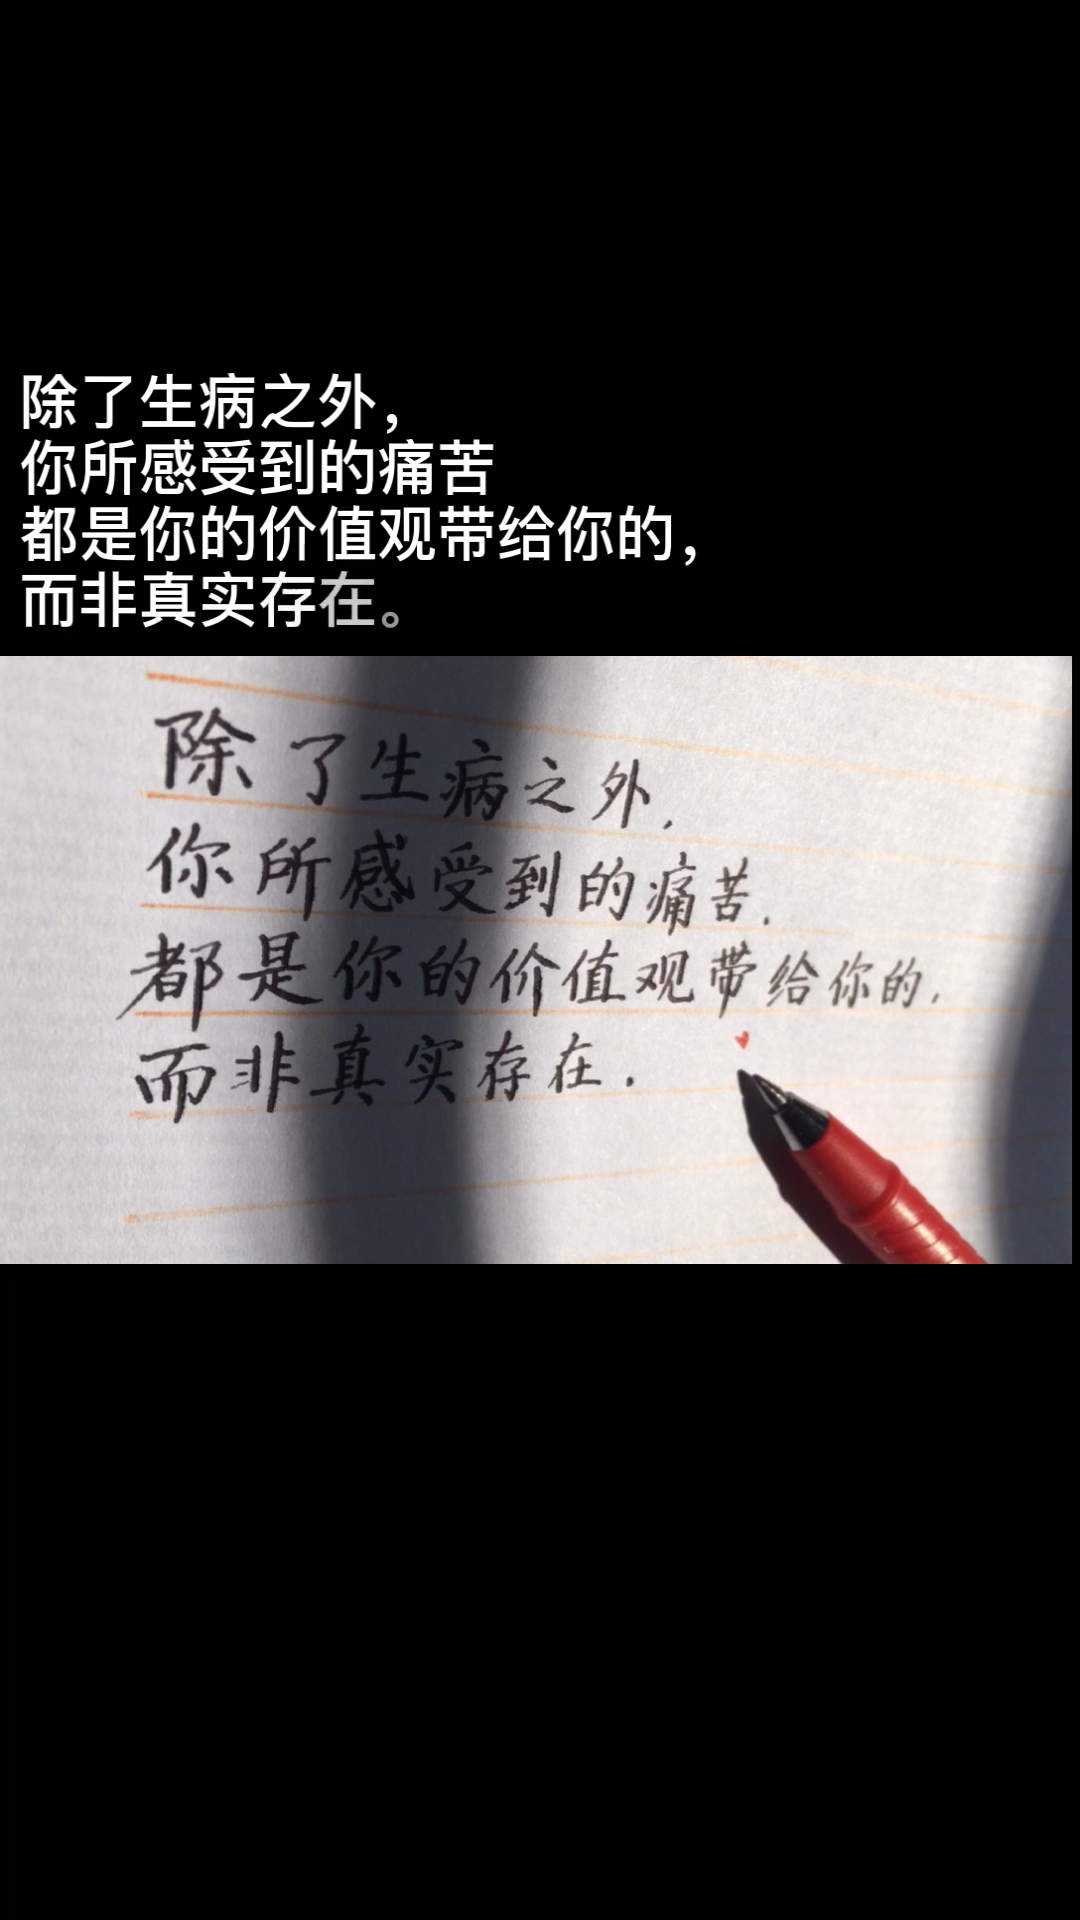 除了生病之外，
你所感受到的痛苦
都是你的价值观带给你的，
而非真实存在。
除了生病之外.
你所感受到的痛苦.
都是你的价值观带给你的,
而非真实存在.